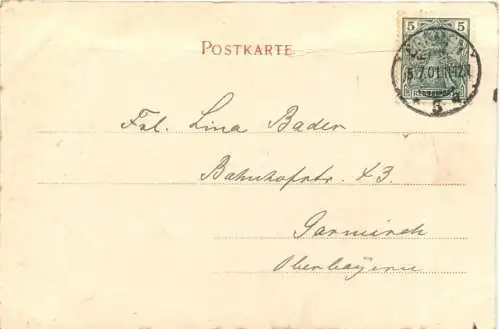 POSTKARTE
5 5
5.7.01.
5 a
Frl. Lina Bader
Bahnhofstr. 43.
Garmisch
Oberbayern